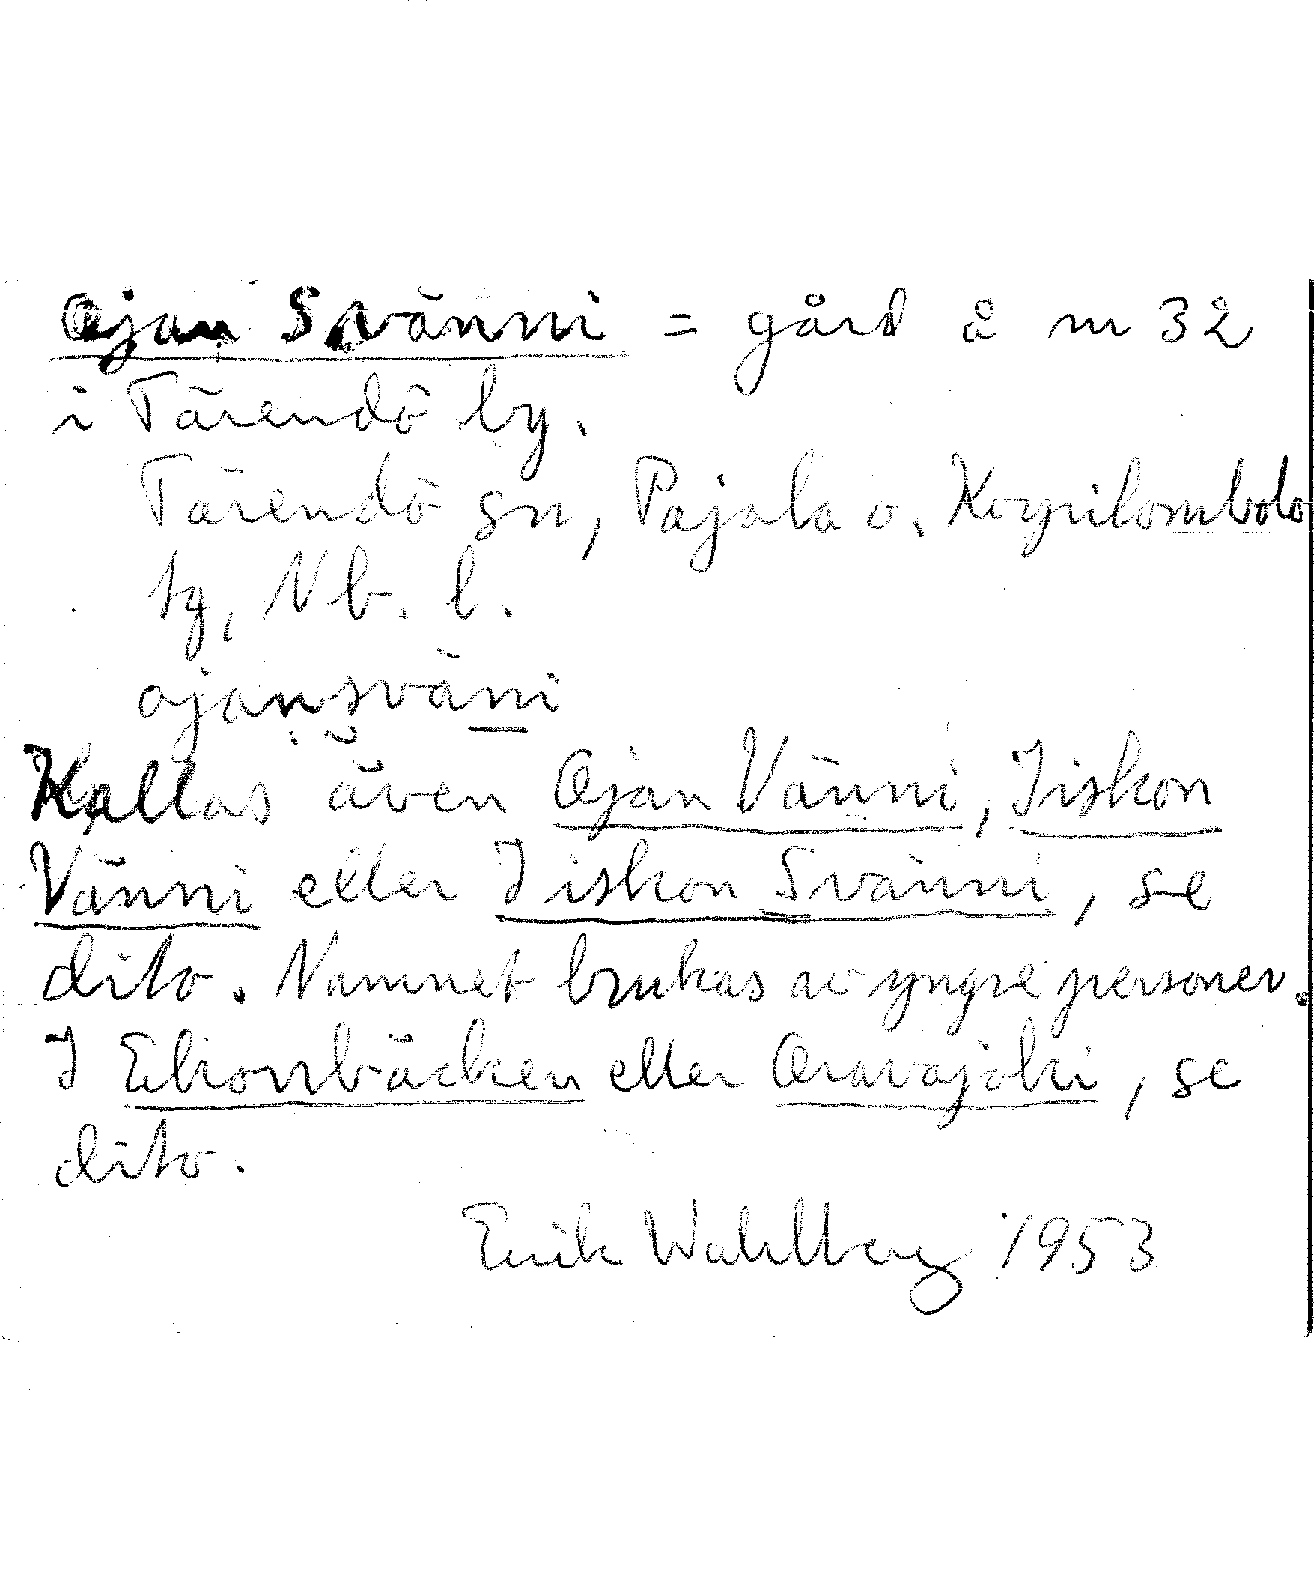 Ojan Svänni = gård å nr 32
i Tärendö by.
Tärendö sn, Pajala o. Korpilombolo
tg, Nb. l.
ojansväni
Kallas även Ojan Vänni, Iiskon
Vänni eller Iiskon Svänni, se
dito. Namnet brukas av yngre personer.
I Ekonbäcken eller Oravajoki, se
dito.
Erik Wahlberg 1953